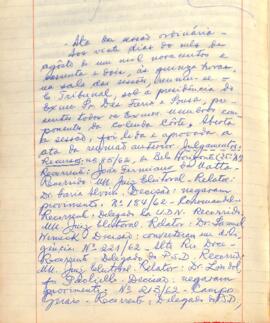 Ata da sessão ordinária.
Aos vinte dias do mês de
agosto de um mil novecentos e
sessenta e dois, às quinze horas,
na sala das sessões, reuniu-se o
E. Tribunal, sob a presidência do
Exmo Sr. Des. Faria e Sousa, pre-
sentes todos os Exmos membros
componentes da colenda Côrte. Aberta
a sessão, foi lida e aprovada a
ata da reunião anterior. Julgamentos:
Recursos nº 85/62, de Belo Horizonte
Recorrente: João Firmiano da Matta.
Recorrido: MM. Juiz Eleitoral. Relator:
Dr. Decisão: negaram
provimento. Nº 184/62 -
Recorrente: Delegado da U.D.N. Recorrido:
MM. Juiz Eleitoral. Relator: Dr.
Decisão: converteram em dili-
gência. Nº 221/62 - Alto Rio Doce -
Recorrente: Delegado do P.S.D. Recorrido:
MM. Juiz Eleitoral. Relator: Dr.
Decisão: negaram
provimento. Nº 213/62 - Campos
Gerais - Recorrente: Delegado do P.S.D.